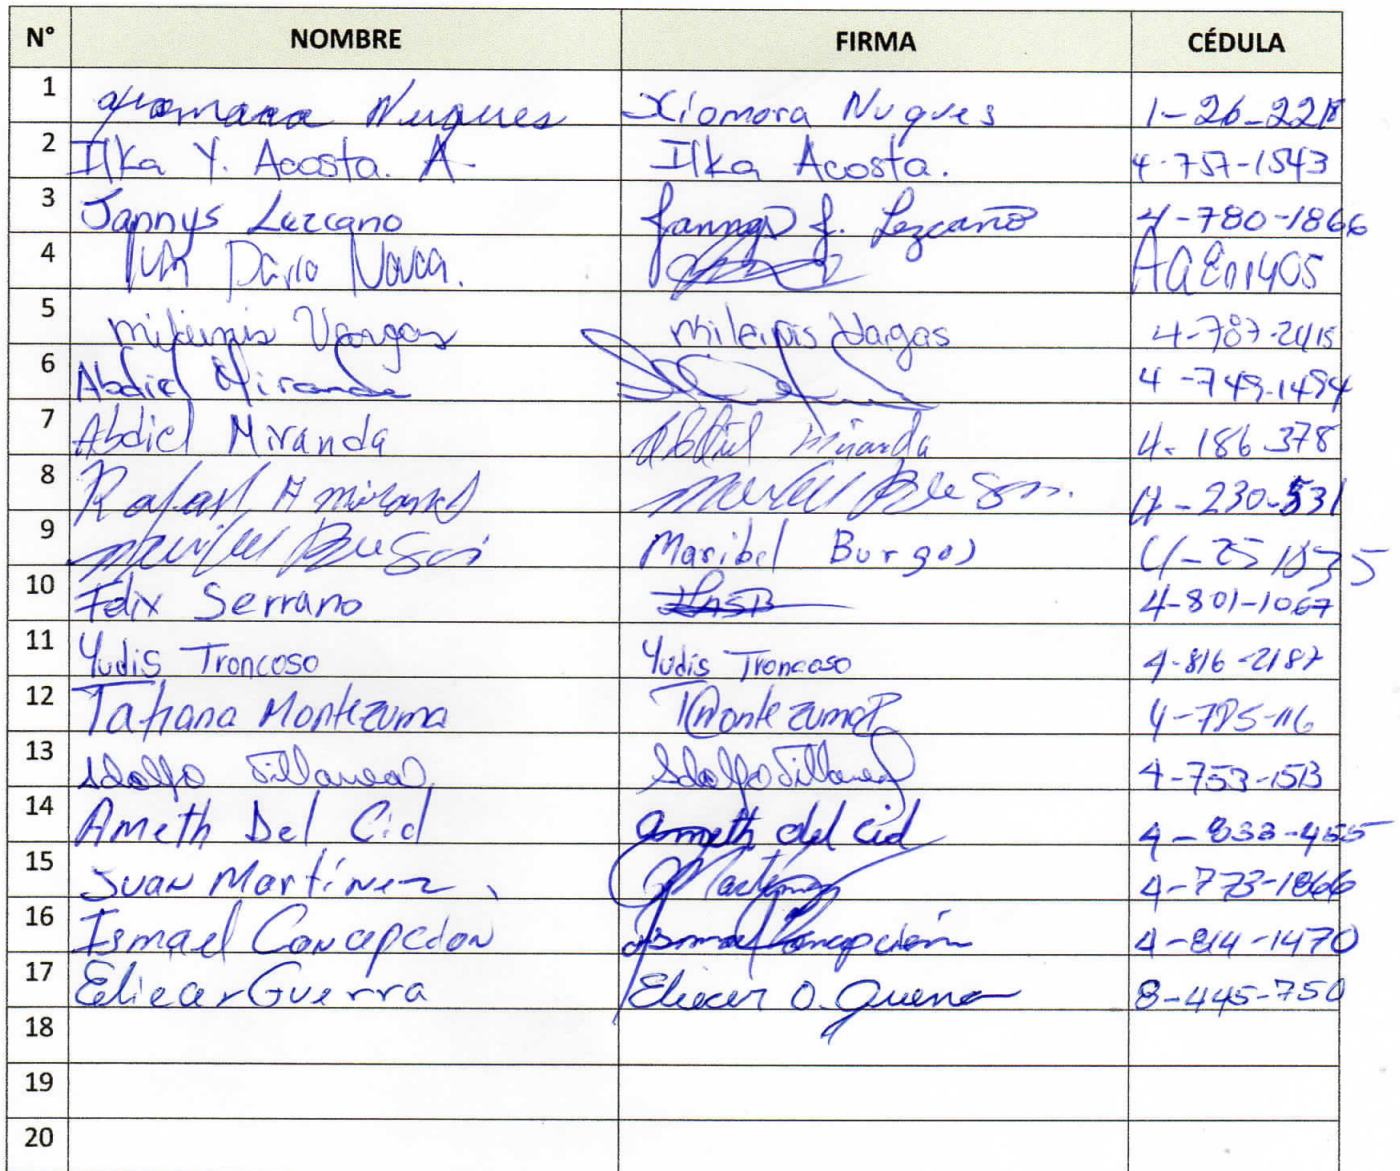 N° NOMBRE FIRMA CÉDULA
1 Xiomara Nugues Xiomora Nugues 1-26-2218
2 Ilka Y. Acosta. A. Ilka Acosta. 4-757-1543
3 Jannys Lezcano Jannys J. Lezcano 4-780-1866
4 Dario
5 Vargas Mileinis Vargas 4-787-2415
6 Abdiel Miranda 4-749-1494
7 Abdiel Miranda Abdiel Miranda 4-186-378
8 Rafael A Miranda 4-230-531
9 Maribel Burgos
10 Felix Serrano 4-801-1067
11 Yudis Troncoso Yudis Troncoso 4-816-2187
12 Tatiana Montezuma Montezuma 4-785-116
13 Adolfo Villarreal Adolfo Villarreal 4-753-1513
14 Ameth Del Cid Ameth del Cid 4-833-455
15 Juan Martínez Martínez 4-773-1866
16 Ismael Concepcion Ismael Concepción 4-814-1470
17 Eliecer Guerra Eliecer O. Guerra 8-445-750
18
19
20